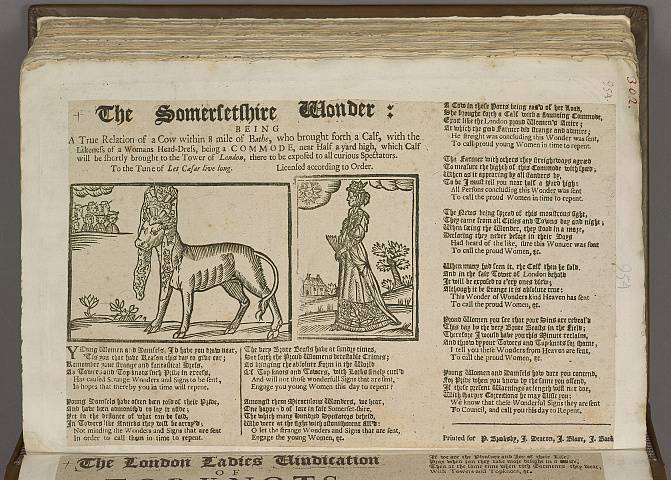 The Somersetshire Wonder:
BEING
A True Relation of a Cow within 8 mile of Bathe, who brought forth a Calf, with the
Likeness of a Womans Head-Dress, being a COMMODE, near Half a yard high, which Calf
will be shortly brought to the Tower of London, there to be exposed to all curious Spectators.
To the Tune of Let Cæsar live long. Licensed according to Order.
YOung Women and Damsels, I'd have you draw near,
'Tis you that have Reason this day to give ear;
Remember your strange and fantastical Dress,
As Towers and Top knots such Pride to express,
Has caused Strange Wonders and Signs to be sent,
In hopes that thereby you in time will repent.
Young Damsels have often been told of their Pride,
And have been admonish'd to lay it aside;
Yet in the ballance of what can be said,
In Towers like Anticks they will be array'd:
Not minding the Wonders and Signs that are sent
In order to call them in time to repent.
The very Brute Beasts have at sundry times,
Set forth the Proud Womens detestable Crimes;
As bringing the absolute Form in the World
Of Top knots and Towers, with Locks finely curl'd
And will not those Wonderful Signs that are sent,
Engage you Young Women this day to repent!
Amongst them Miraculous Wonders, we hear,
One happen'd of late in fair Somerset-shire,
The which many Hundred Spectators beheld,
Who were at the sight with astonishment fill'd:
O let the strange Wonders and Signs that are sent,
Engage the young Women, &c.
A Cow in those Parts being eas'd of her Load,
She brought forth a Calf with a flaunting Commode,
Just like the London proud Women's Attire;
At which the good Farmer did strange and admire;
He streight was concluding this Wonder was sent,
To call proud young Women in time to repent.
The Farmer with others they streightways agreed
To measure the height of this Commode with speed;
When as it appearing by all standers by,
To be I must tell you near half a Yard high:
All Persons concluding this Wonder was sent
To call the proud Women in time to repent.
The News being spread of this monstrous sight,
They came from all Cities and Towns day and night;
When seeing the Wonder, they stood in a maze,
Declaring they never before in their Days
Had heard of the like, sure this Wonder was sent
To call the proud Women, &c.
When many had seen it, the Calf then he sold,
And in the fair Tower of London behold
It will be exposed to e'ry ones view;
Although it be strange it is absolute true:
This Wonder of Wonders kind Heaven has sent
To call the proud Women, &c.
Proud Women you see that your Sins are reveal'd
This day by the very Brute Beasts in the Field;
Therefore I would have you this Minute reclaim,
And throw by your Towers and Topknots for shame,
I tell you these Wonders from Heaven are sent,
To call the proud Women, &c.
Young Women and Damsels how dare you contend,
For Pride when you know by the same you offend,
If these present Warnings at length will not do,
With sharper Corrections he may visit you:
We know that these Wonderful Signs they are sent
To Council, and call you this day to Repent.
Printed for P. Brooksby, J. Deacon, J. Blare, J. Back
The London Ladies Vindication
OF
TOPKNOTS
302